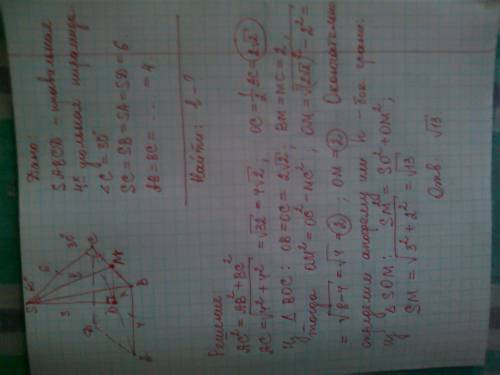 Дано:
SABCD - правильная
4х угольная пирамида
∠C = 30°
SC = SB = SA = SD = 6
AB = BC = ...... = 4
Найти: h - ?
S
60°
6
6
3
30°
C
M
B
4
Решение:
AC² = AB² + BC²
AC = √4² + 4² = √32 = 4√2; OC = ½ AC = 2√2
Из Δ BOC: OB = OC = 2√2, BM = MC = 2,
тогда OM² = OC² - MC², OM = √(2√2)² - 2² =
= √8-4 = √4 = 2; OM = 2. Окончательно
определим апофему или h - бок. грани.
из Δ SOM: SM² = SO² + OM²;
SM = √3² + 2² = √13
Отв. √13